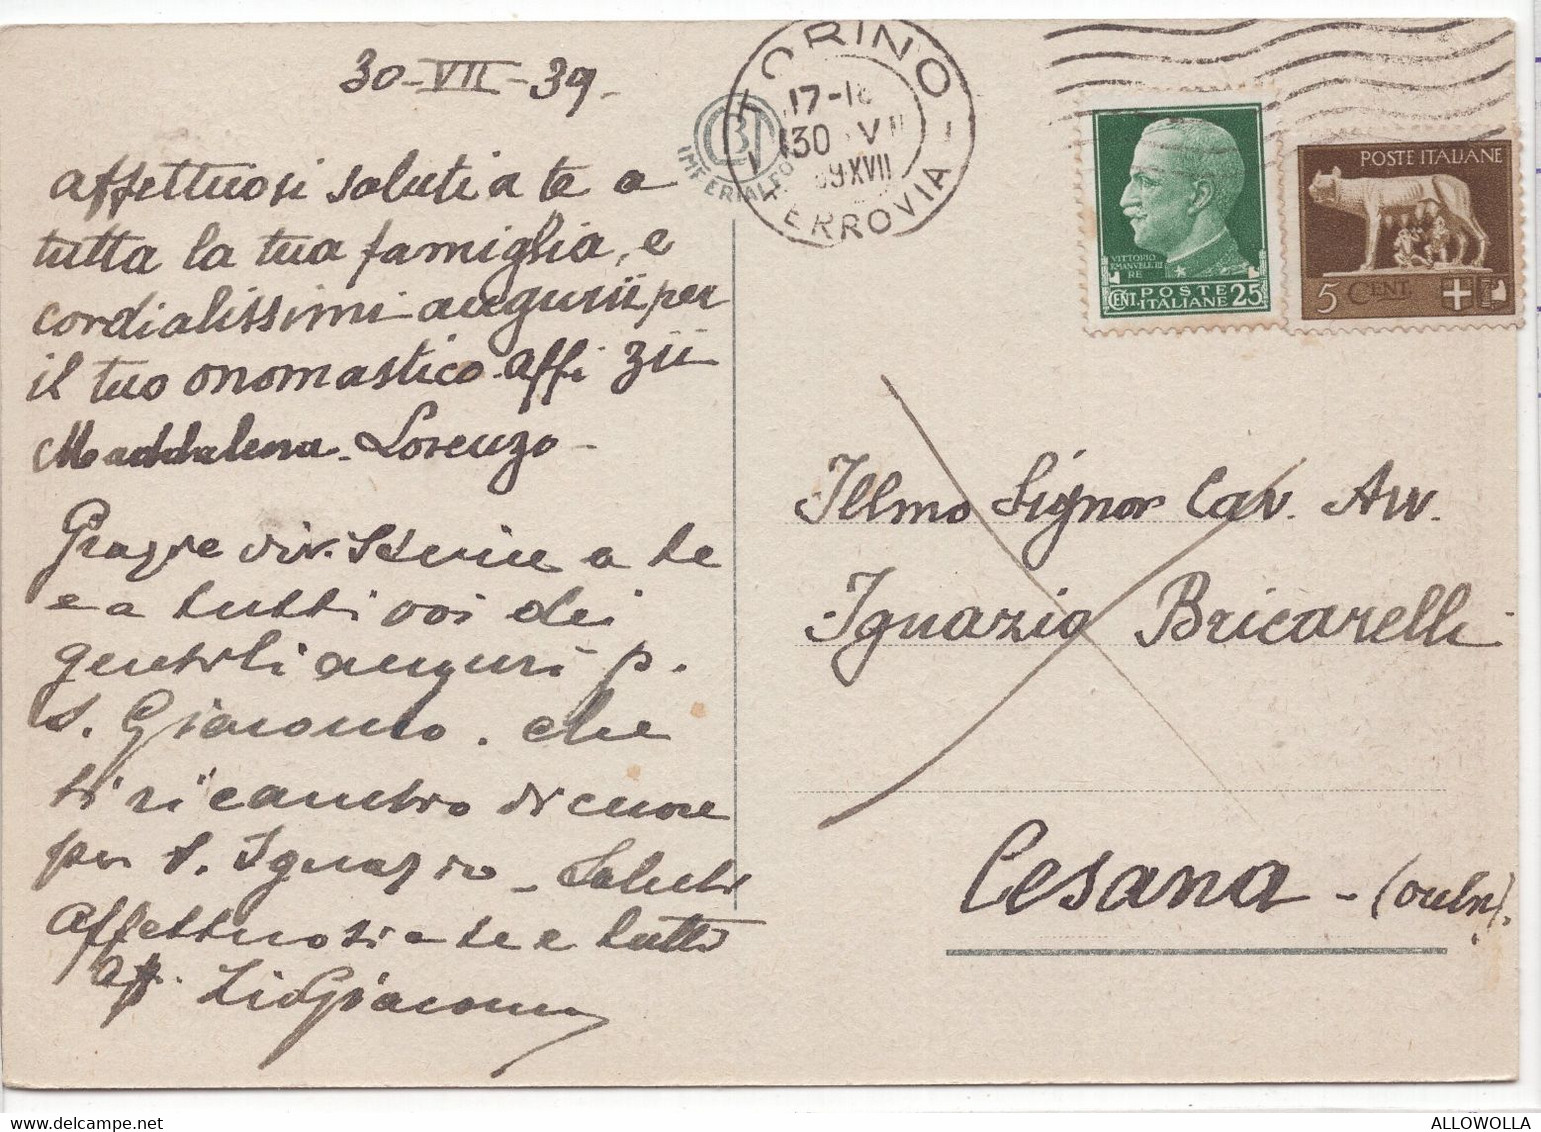 30-VII-39-
affettuosi saluti a te a
tutta la tua famiglia, e
cordialissimi augurii per
il tuo onomastico. affi zii
Maddalena. Lorenzo-
Grazie a te
e a tutti voi dei
gentili auguri p.
S. Giacomo. che
ti ricambio di cuore
per S. Ignazio - Saluti
affettuosi a te e tutti
aff. Zio Giacomo
CBT
IMPERIALFO
TORINO
17-18
30 VII
39 XVII
FERROVIA
VITTORIO
EMANUELE III
RE
CENT. POSTE ITALIANE 25
POSTE ITALIANE
5 CENT.
Illmo Signor Cav. Avv.
Ignazio Bricarelli
Cesana - (oulx).
ALLOWOLLA